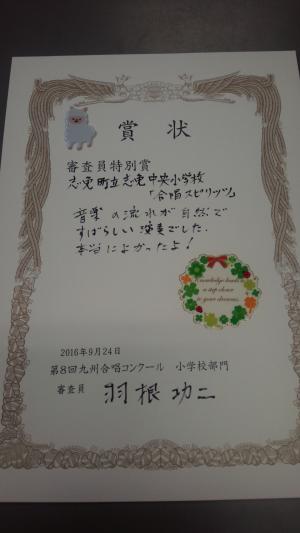 賞状
審査員特別賞
志免町立志免中央小学校
「合唱スピリッツ」
音楽の流れが自然で
すばらしい演奏でした。
本当によかったよ!
Knowledge leads
a step closer
to your dreams.
2016年9月24日
第8回九州合唱コンクール 小学校部門
審査員 羽根功二